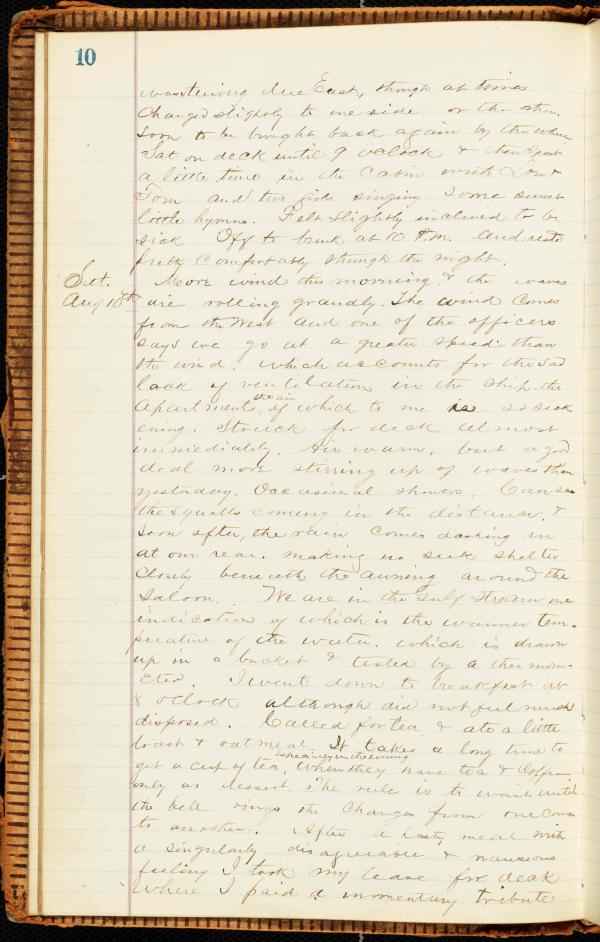 10
due East, though at times
changed slightly to one side or the other.
Soon to be brought back again by the
Sat on deck until 9 oclock & then spent
a little time in the Cabin with
Tom and two girls singing some sweet
little hymns. Felt slightly inclined to be
sick. Off to bunk at 10 P.M. and rested
pretty comfortably through the night.
Sat. More wind this morning & the waves
Aug 10th are rolling grandly. The wind comes
from the West and one of the officers
says we go at a greater speed than
the wind. which accounts for the sad
lack of ventilation in the ship. the
the air
apartments, of which to me is so sick
ening. Struck for deck almost
immediately. Air warm, but a good
deal more stirring up of waves than
yesterday. Occasional showers. Can see
the squalls coming in the distance, &
soon after, the rain comes dashing in
at our rear. making us seek shelter
closely beneath the awning around the
Saloon. We are in the Gulf Stream one
indication of which is the warmer tem-
perature of the water. which is drawn
up in a bucket & tested by a thermom-
eter. I went down to breakfast at
8 oclock although did not feel much
disposed. Called for tea & ate a little
toast & oatmeal. It takes a long time to
especially in the evening
get a cup of tea, when they have tea & Coffee
only as dessert. The rule is to wait until
the bell rings the changes from one course
to another. After a hasty meal with
a singularly disagreeable & nauseous
feeling I took my leave for deck
where I paid a momentary tribute